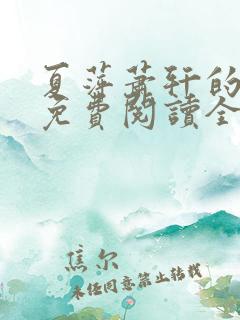 夏萍蕭軒的
免費閱讀全
焦尔
未经同意禁止转载